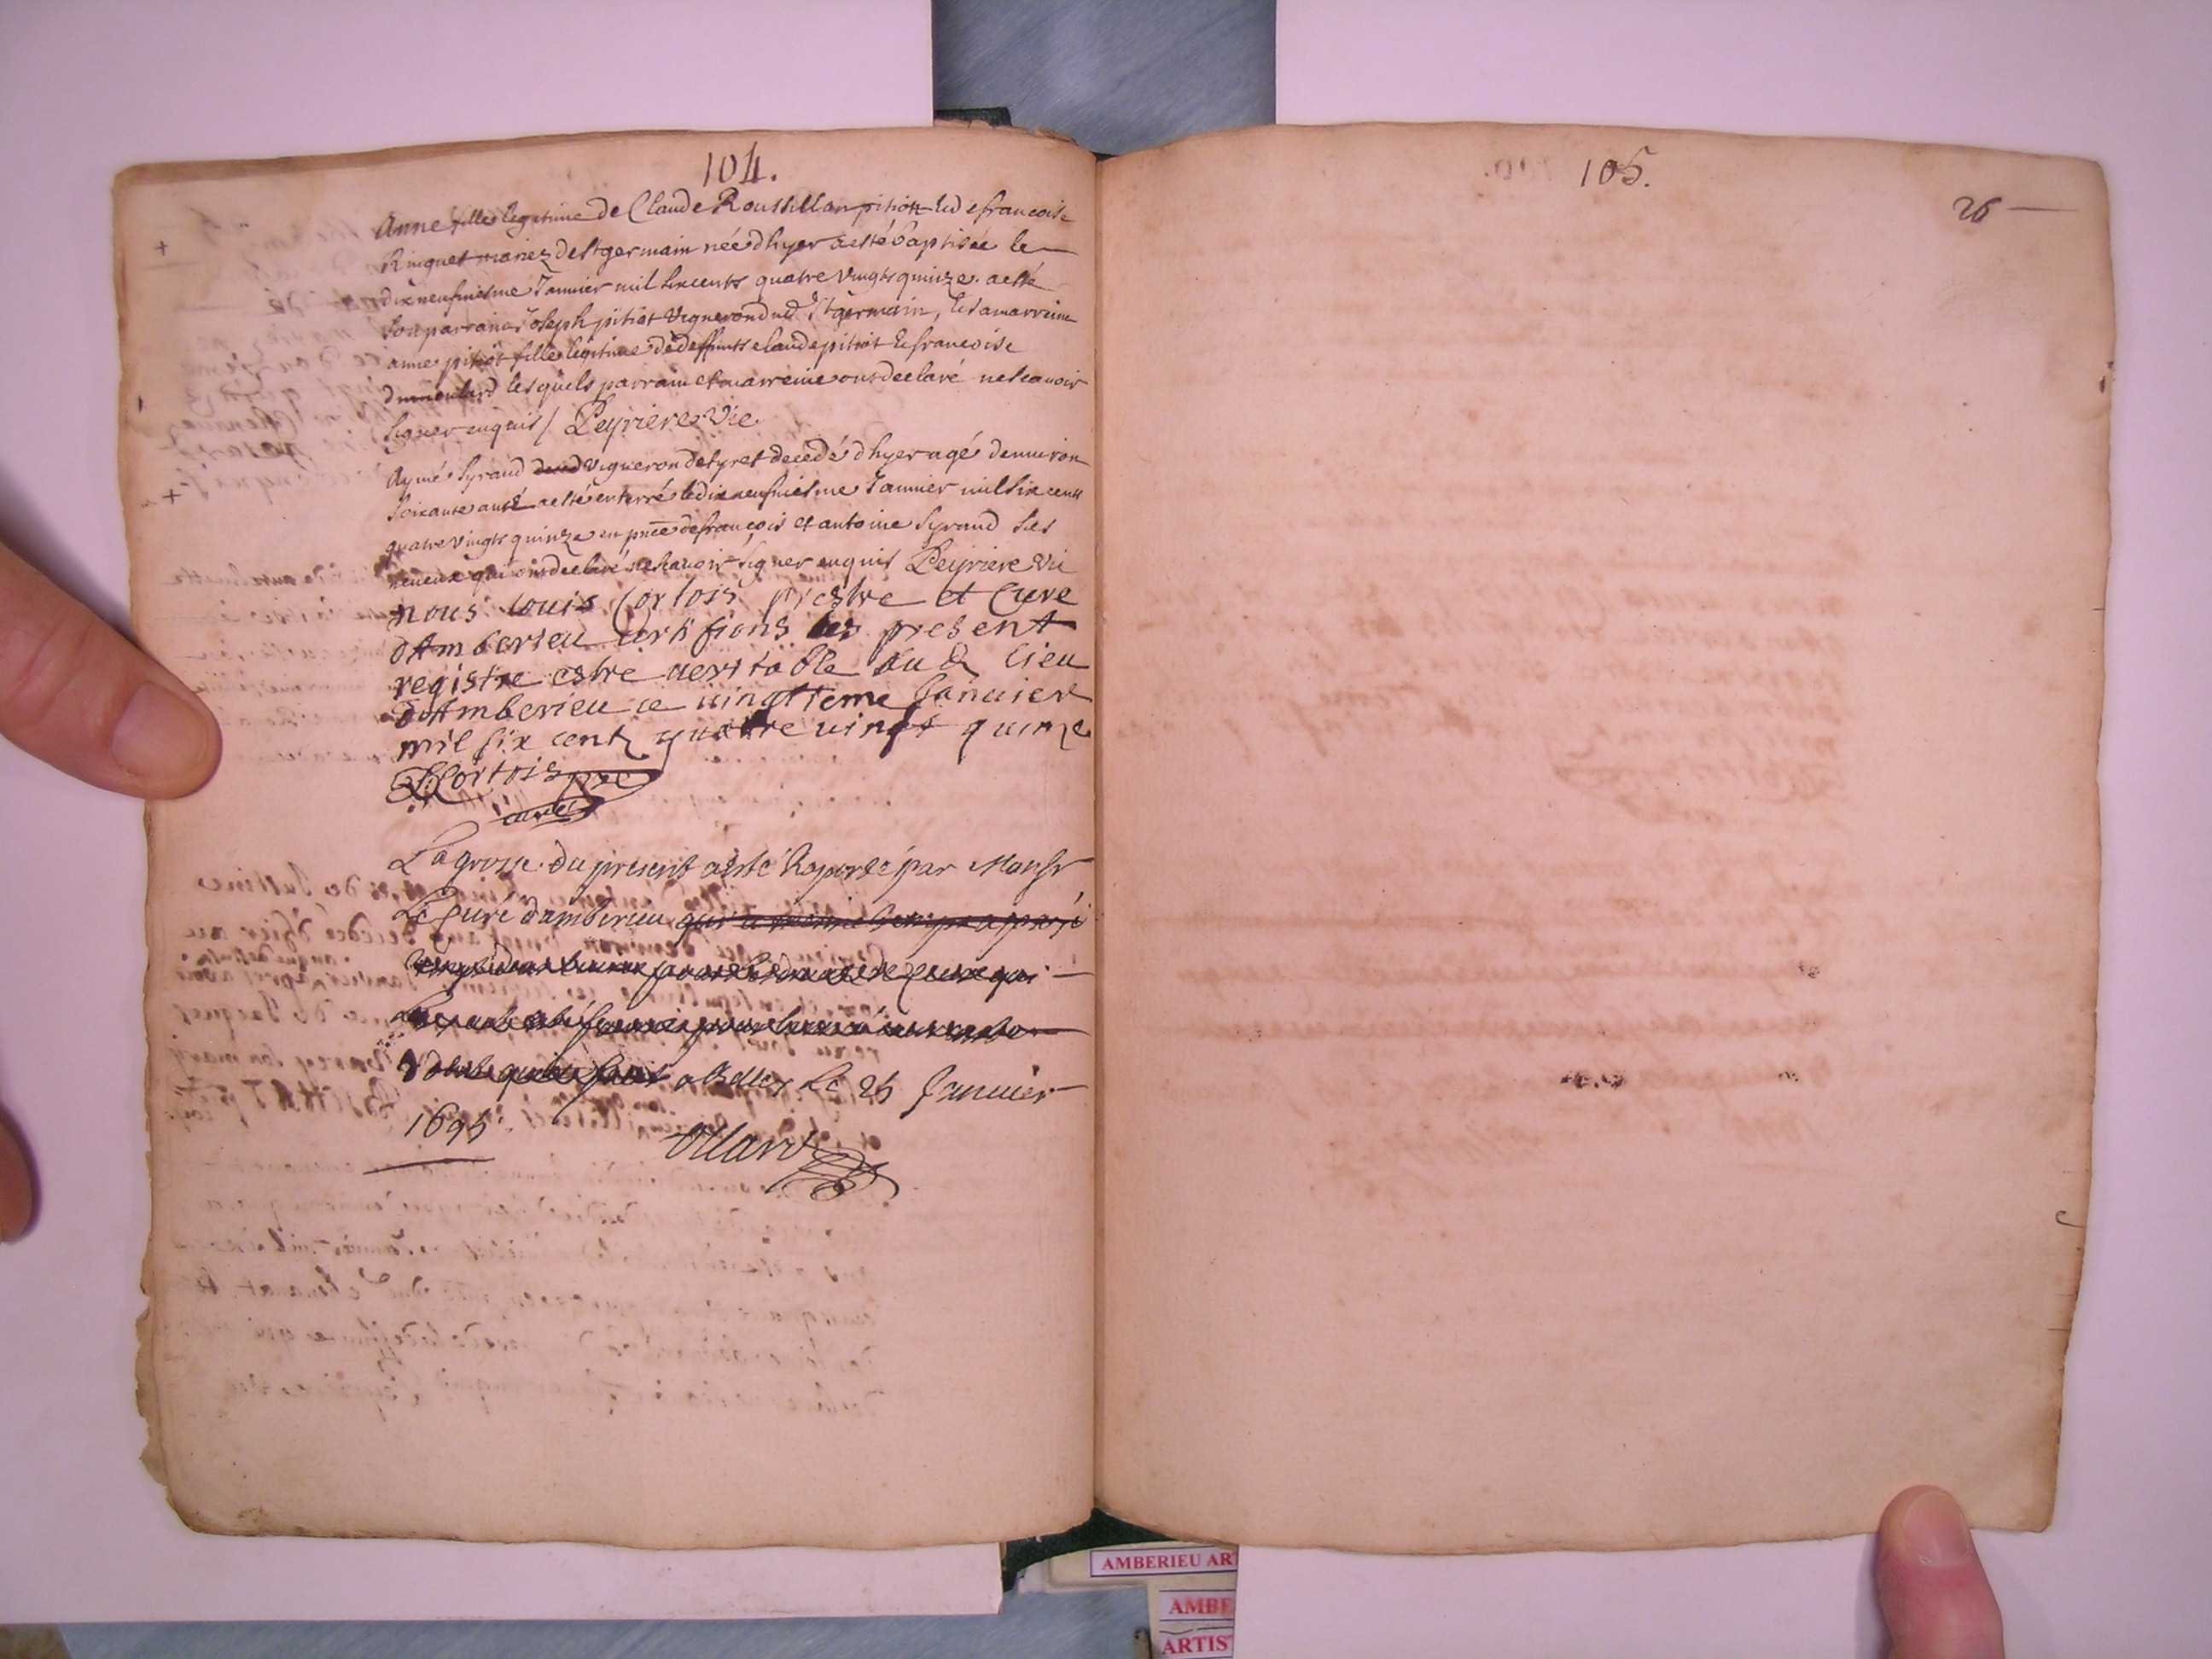 104.
Anne fille legitime de Claude Roussillon pition et de francoise
Ringuet mariez de st germain née d hyer a esté baptisée le
dix neufviesme Janvier mil six cents quatre vingts quinze. a esté
son parrain Joseph pitiot vigneron dud st germain, et sa marreine
anne pitiot fille legitime de deffunts claude pitiot et francoise
dumoulard lesquels parrain et marreine ont declaré ne scavoir
signer enquis / Peyriere Vic
+
Aymé Syraud vigneron de tyret decedé d hyer agé denviron
soixante ans a esté enterré le dix neufviesme Janvier mil six cents
quatre vingts quinze en pnce de françois et antoine Syraud ses
neveux qui ont declaré ne scavoir signer enquis Peyriere Vic
+
nous louis Cortois prestre et Curé
dAmberieu certifions le present
registre estre veritable dud lieu
dAmberieu ce vingttieme Janvier
mil six cents quattre vingt quinze
L Cortois pre
curé
La grosse du present a esté Raporté par Monsr
Le Curé damberieu qui a
a Belley Le 25 Janvier
1695.
105.
26
AMBERIEU AR
AMBE
ARTIS